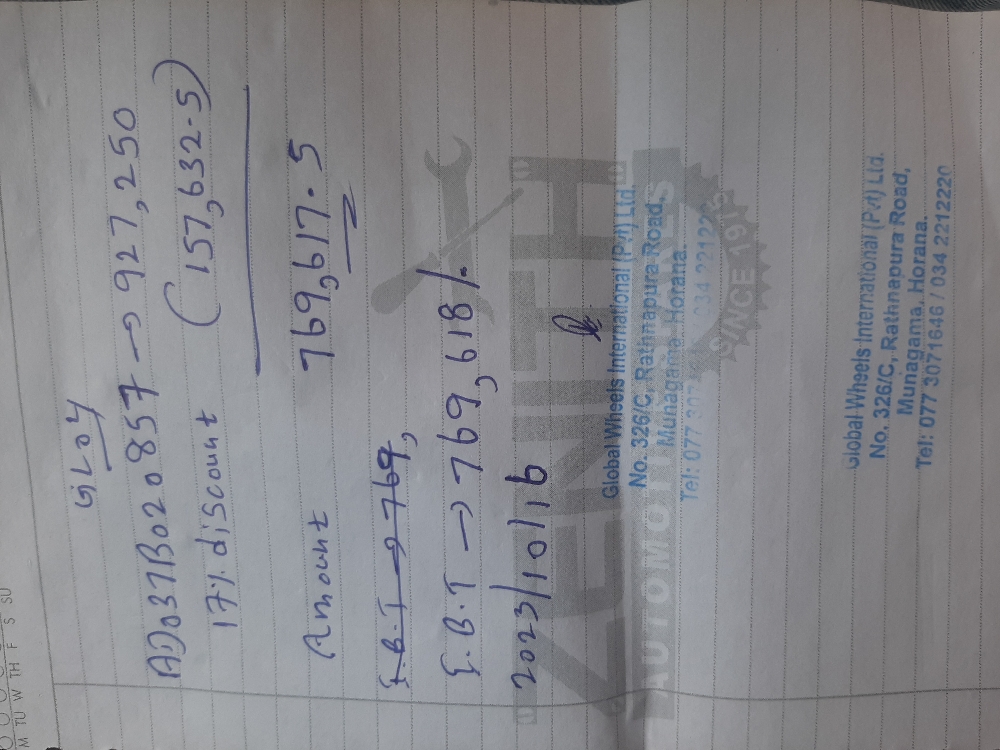 GL04
AD037B020857 → 927,250
17% discount (157,632.5)
Amount 769,617.5
F.B.T → 769,
F.B.T → 769,618/.
2023/10/16
ZENITH
AUTOMOTIVE
SINCE 1975
Global Wheels International (Pvt) Ltd.
No. 326/C, Rathnapura Road,
Munagama, Horana.
Tel: 077 307 034 22122
Global Wheels International (Pvt) Ltd.
No. 326/C, Rathnapura Road,
Munagama, Horana.
Tel: 077 3071646 / 034 2212220
M TU W TH F S SU